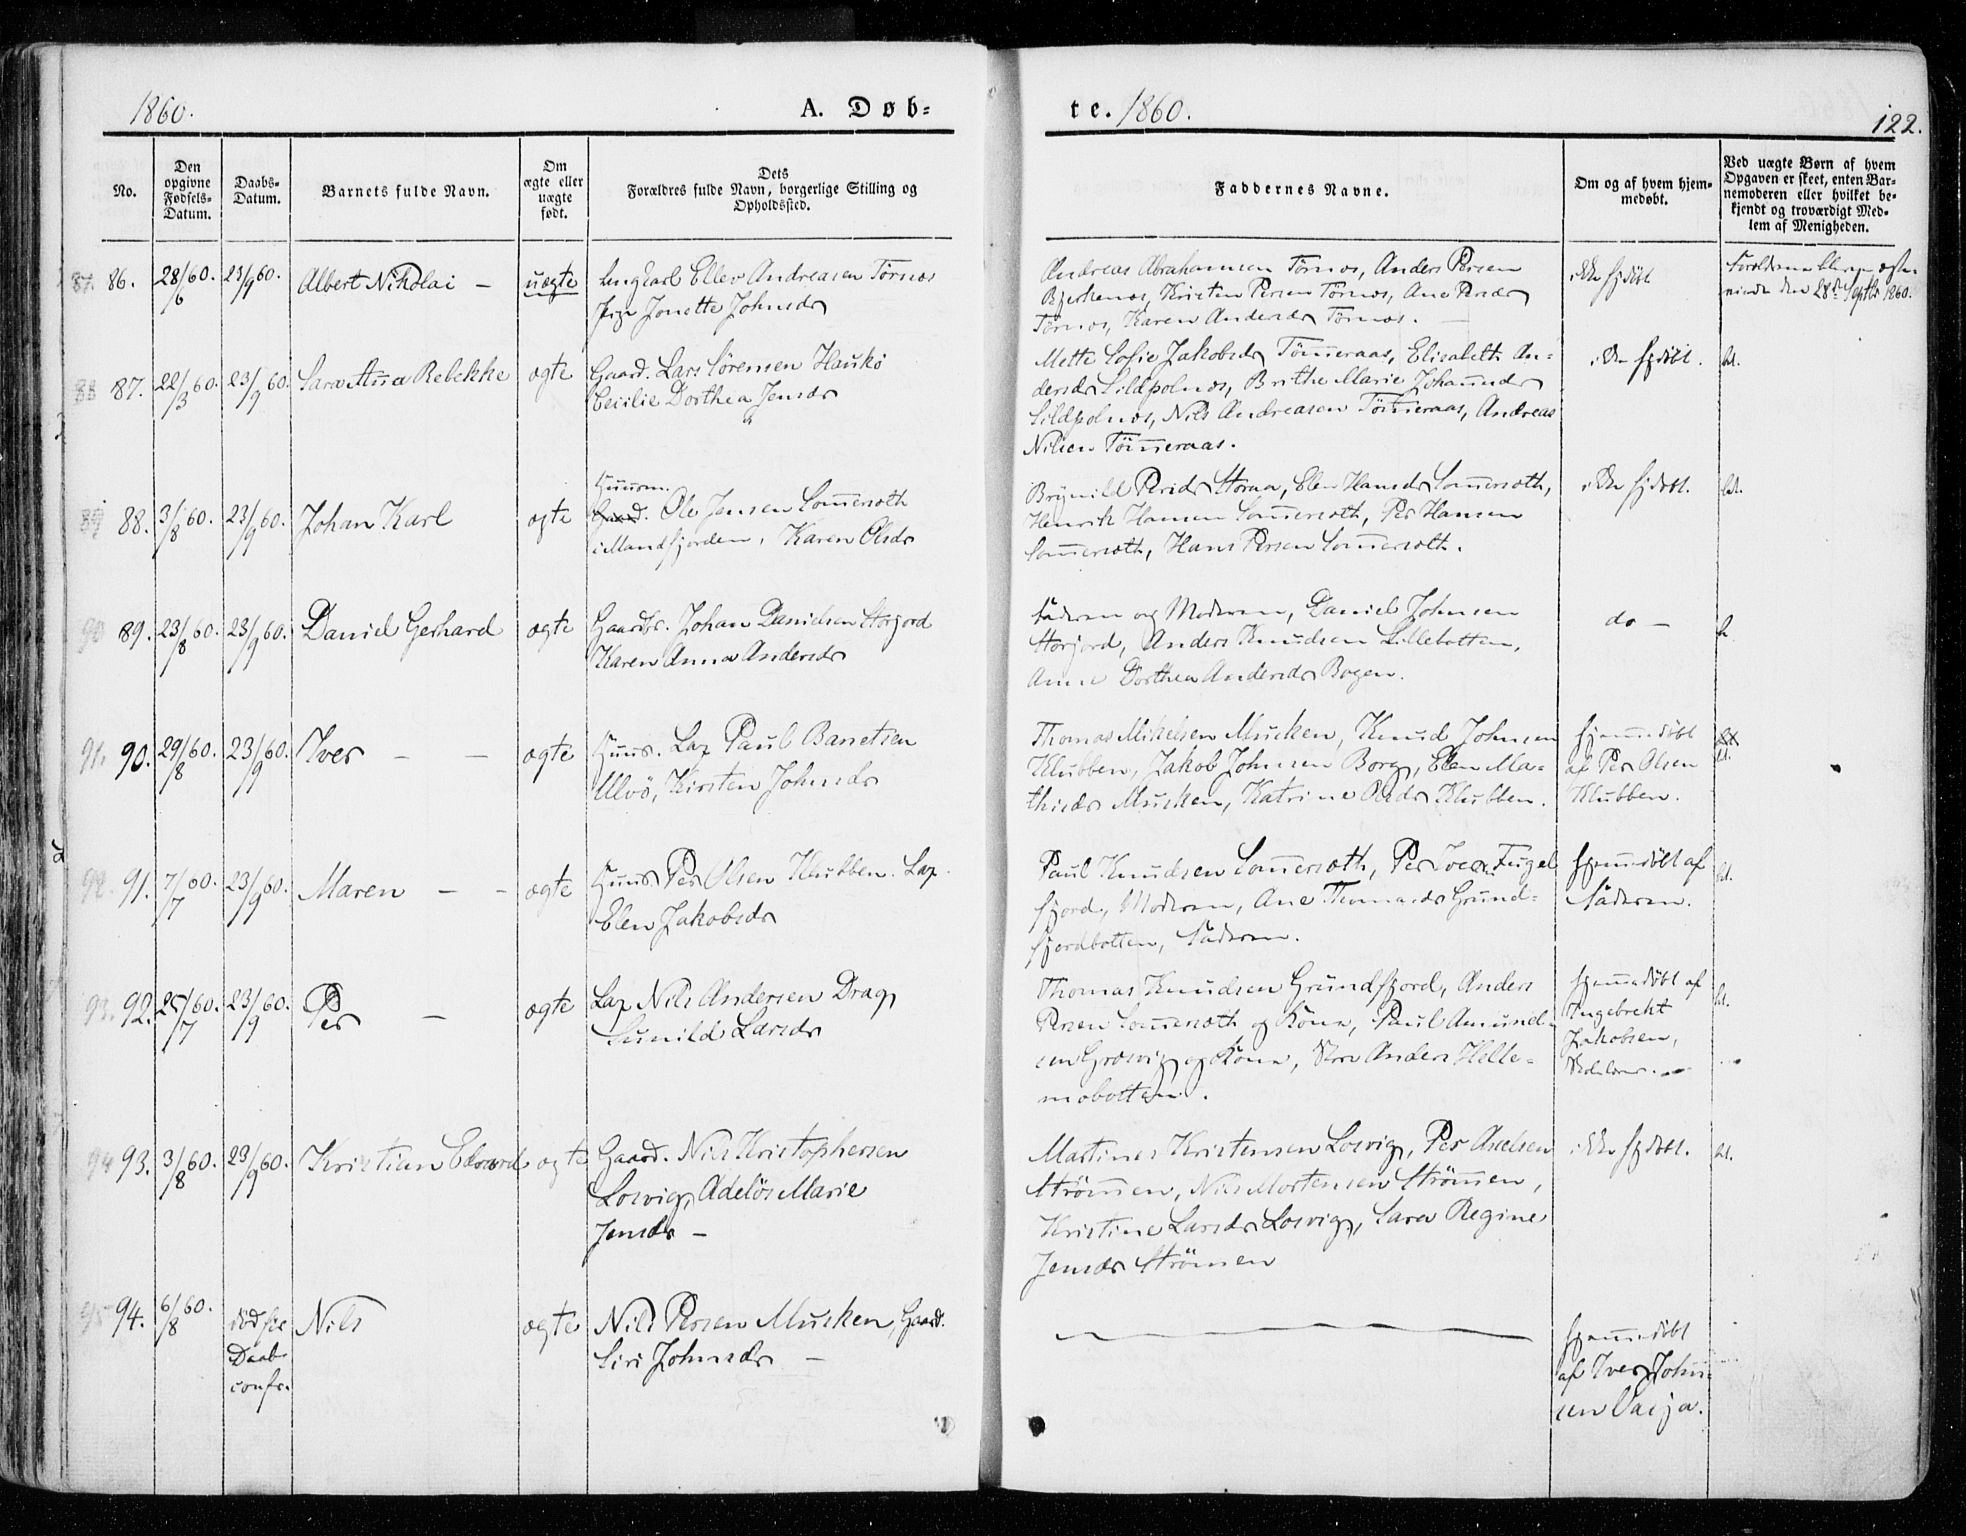 1860.
A. Døb-
te. 1860.
122.
No.
Den opgivne Fødsels-Datum.
Daabs-Datum.
Barnets fulde Navn.
Om ægte eller uægte født.
Dets
Forældres fulde Navn, borgerlige Stilling og
Opholdssted.
Faddernes Navne.
Om og af hvem hjem-
medøbt.
Ved uægte Børn af hvem
Opgaven er skeet, enten Bar-
nemoderen eller hvilket be-
kjendt og troværdigt Med-
lem af Menigheden.
87. 86. 28/6 60. 23/9 60. Albert Nikolai — uægte Ungkarl Ellev Andreasen Tørnæs
Pige Jonette Johnsdr
Andreas Abrahamsen Tørnæs, Anders Persen
Bjerkenæs, Kristen Persen Tørnæs, Ane Persdr
Tørnæs, Karen Andersdr Tørnæs.
ikke hjdøbt
den 28de Septbr 1860.
88 87. 22/3 60. 23/9 60. Sara Anna Rebekke ægte Gaard. Lars Sørensen Haukø
Cecilie Dorthea Jensdr
Mette Sofie Jakobsdr Tømmeraas, Elisabeth An-
dersdr Sildpolnæs, Brithe Marie Johannsdr
Sildpolnæs, Nils Andreasen Tømmeraas, Andreas
Nilsen Tømmeraas.
ikke hjdøbt.
89 88. 3/8 60. 23/9 60. Johan Karl ægte Huusm.
Gaard. Ole Jensen Sommersæth
i Mandfjorden, Karen Olsdr
Brynild Persdr Storaa, Elen Hansdr Sommersæth,
Henrik Hansen Sommersæth, Per Hansen
Sommersæth, Hans Persen Sommersæth.
ikke hjdøbt.
90 89. 23/8 60. 23/9 60. Daniel Gerhard ægte Gaardbr. Johan Danielsen Storjord
Karen Anna Andersdr
Faderen og Moderen, Daniel Johnsen
Storjord, Anders Knudsen Lillebotten,
Anne Dorthea Andersdr Bogen.
do —
91. 90. 29/8 60. 23/9 60. Iver — — ægte Huus. Lap Paul Barretsen
Ulvø, Kirsten Johnsdr
Thomas Mikelsen Musken, Knud Johnsen
Klubben, Jakob Johnsen Borg, Elen Ma-
thisdr Musken, Katrine Olsdr Klubben.
hjemmedøbt
af Per Olsen
Klubben.
92. 91. 7/7 60. 23/9 60. Maren — — ægte Huus. Per Olsen Klubben. Lap.
Elen Jakobsdr
Paul Knudsen Sommersæth, Per Ivers. Fugel
fjord, Moderen, Ane Thomasdr Grund-
fjordbotten, Faderen.
hjemmedøbt af
Faderen.
93. 92. 25/7 60. 23/9 60. Per — ægte Lap Nils Andersen Drag,
Gunild Larsdr
Thomas Knudsen Grundfjord, Anders
Persen Sommersæth og Kona, Paul Amund-
sen Grøvig og Kona, Anders Helle-
mobotten.
hjemmedøbt af
Ingebrekt
Jakobsen,
94 93. 3/8 60. 23/9 60. Kristian Edvard ægte Gaard. Nils Kristophersen
Losvig, Adeløs Marie
Jensdr —
Martines Kristensen Losvig, Per Axelsen
Strømmen, Nils Mortensen Strømmen,
Kristine Larsdr Losvig, Sara Regine
Jensdr Strømmen
ikke hjdøbt.
95 94. 6/8 60. død før
Daab
confr. Nils ægte Nils Persen Musken, Gaard.
Siri Johnsdr —
hjemmedøbt
af Iver John-
sen Saija.